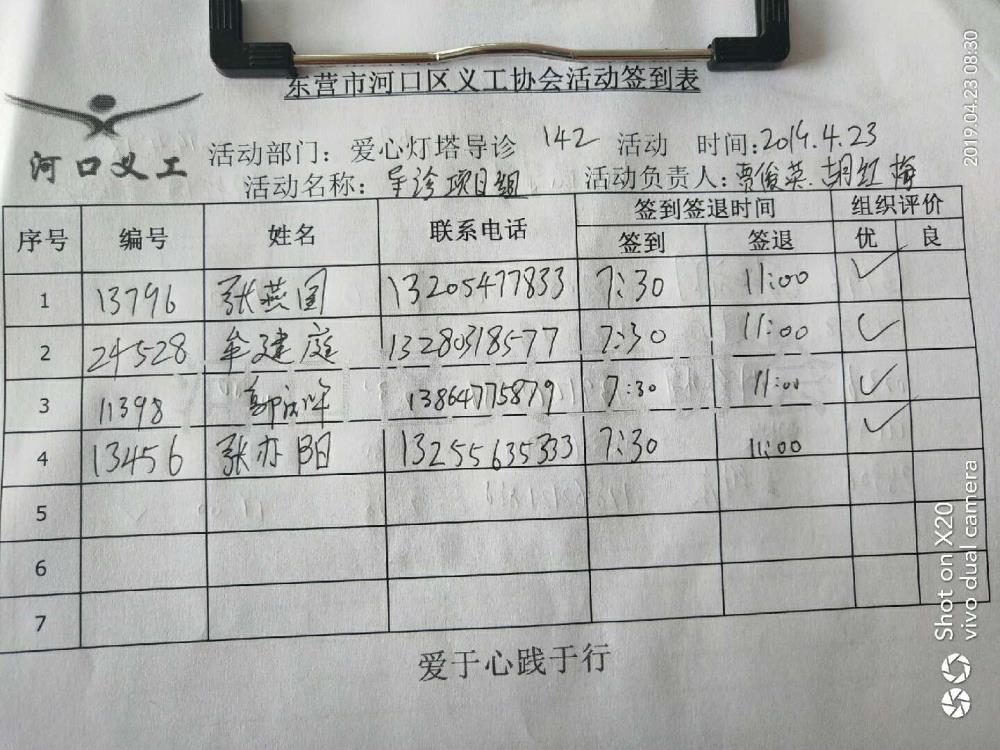 东营市河口区义工协会活动签到表
河口义工
活动部门：爱心灯塔导诊 142 活动 时间：2019.4.23
活动名称：导诊项目组 活动负责人：贾俊英 胡红梅
序号 编号 姓名 联系电话 签到签退时间 组织评价
签到 签退 优 良
1 13796 张燕国 13205477833 7:30 11:00 ✓
2 24528 牟建庭 13280318577 7:30 11:00 ✓
3 11398 13864775879 7:30 11:00 ✓
4 13456 张亦阳 13255635333 7:30 11:00 ✓
5
6
7
爱于心践于行
2019.04.23 08:30
Shot on X20
vivo dual camera